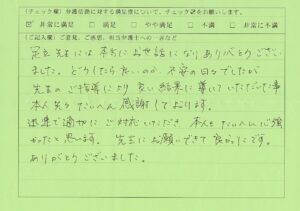 【チェック欄】弁護活動に対する満足度について、チェック☑をお願いします。
☑非常に満足 □満足 □やや満足 □不満 □非常に不満
【ご記入欄】ご意見、ご感想、担当弁護士への一言など
足立先生には本当にお世話になりありがとうござい
ました。どうしたら良いのか、不安の日々でしたが
先生のご指導により良い結果に導いていただいた事
本人共々たいへん感謝しております。
迅速で適切にご対応いただき 本人もたいへん心強
かったと思います。先生にお願いできて良かったです。
ありがとうございました。